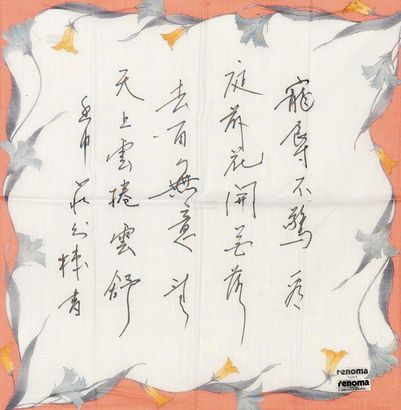 寵辱不驚 看
庭前花開花落
去留無意 望
天上雲捲雲舒
壬申
renoma
renoma